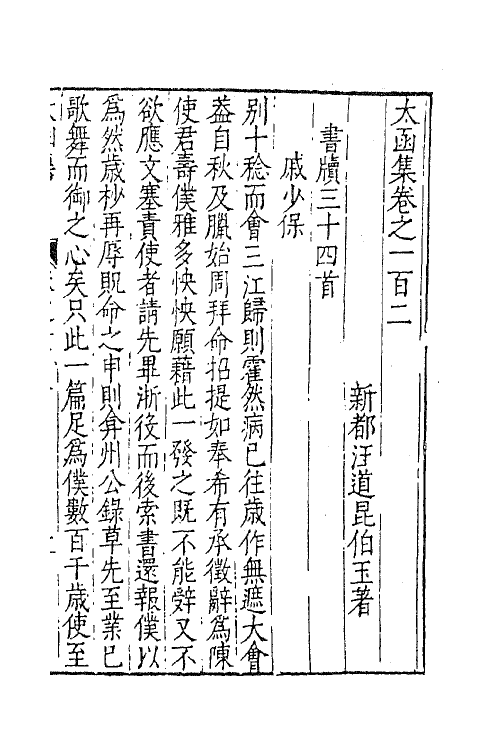 太函集卷之一百二
新都汪道昆伯玉著
書牘三十四首
戚少保
别十稔而會三江歸則霍然病已往歲作無遮大會
葢自秋及臘始周拜命招提如奉希有承徵辭爲陳
使君壽僕雅多怏怏願藉此一發之既不能辤又不
欲應文塞責使者請先畢浙後而後索書還報僕以
爲然歳杪再辱貺命之申則弇州公錄草先至業已
歌舞而御之心矣只此一篇足爲僕數百千歳使至